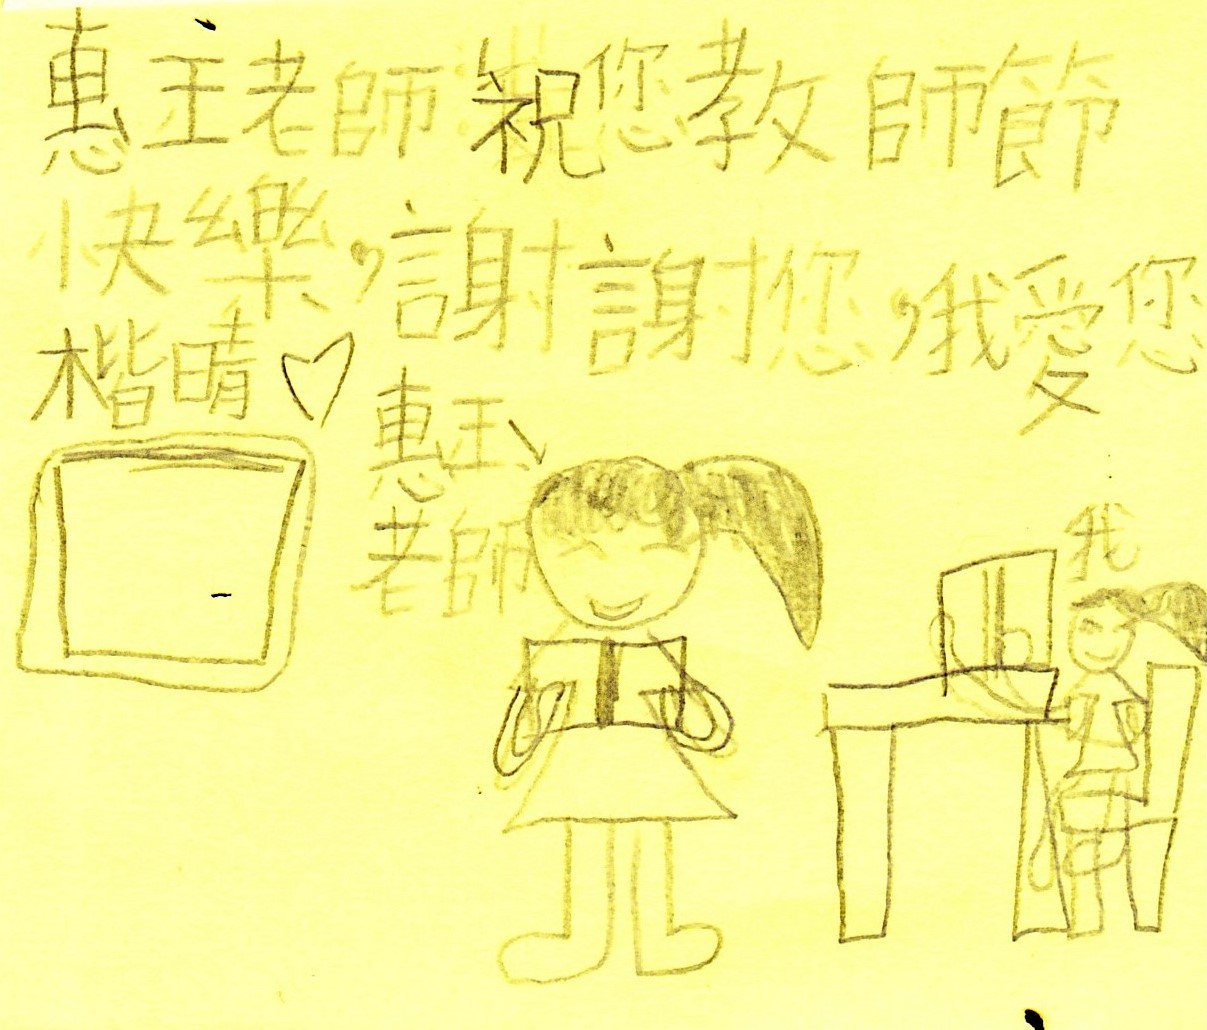 惠王老師祝您教師節
快樂，謝謝您，我愛您
楷晴♡
惠王
老師
我